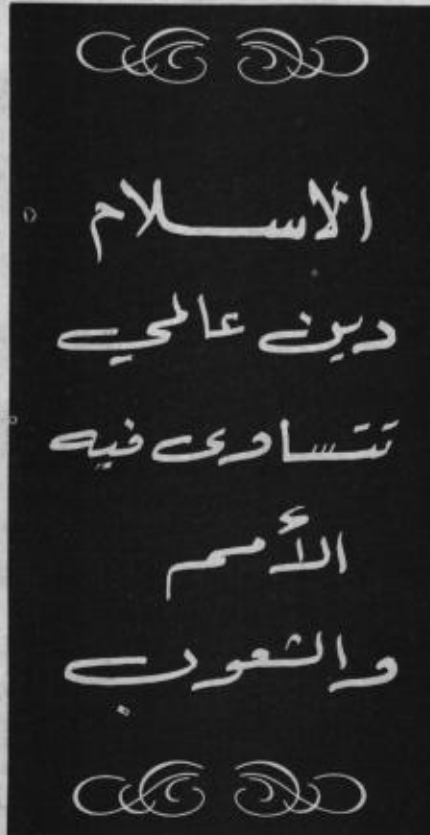 الاسلام
دين عالمي
تتساوى فيه
الأمم
والشعوب